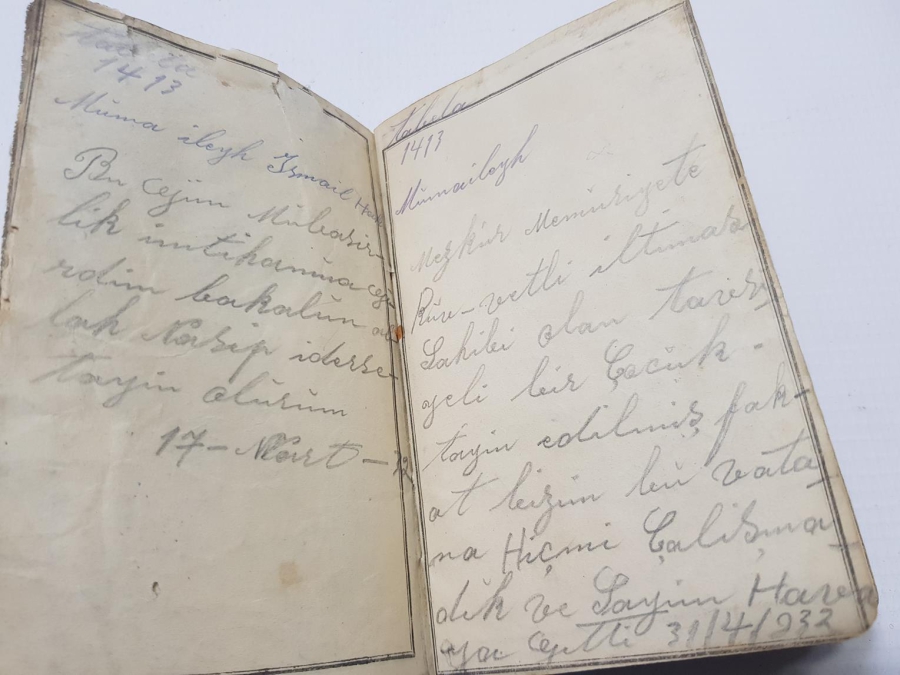 1413
Müma ileyh İsmail
Bu Gün Mübaşir-
lik imtihanına gi-
rdim bakalım al
lah Nasip iderse-
tayin olürüm
17-Mart-
tabela
1413
Mümaileyh
Mezkür Memüriyete
Küv-vetli iltimas
Sahibi olan
geli bir Çocük-
tayin edilmiş fak-
at bizim bü vata
na Hiçmi Çalişma
dik ve Sayim Hava
ya Gitti 31/4/932